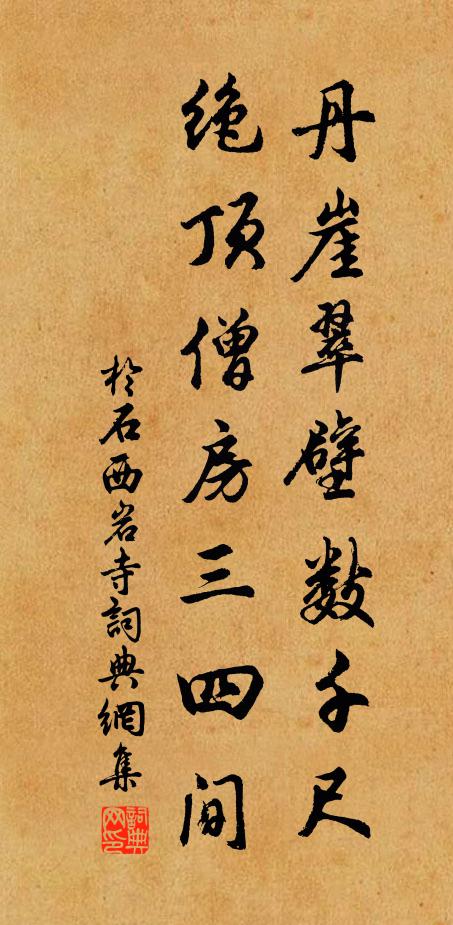 丹崖翠壁数千尺
绝顶僧房三四间
於石西岩寺詞典網集
詞典网印